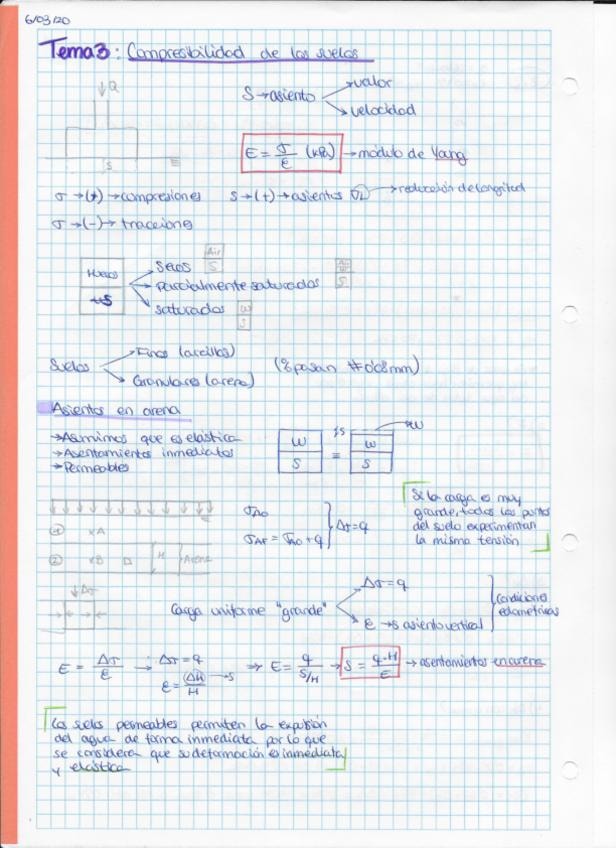 6/03/20
Tema 3: Compresibilidad de los suelos
Q
S → asiento
valor
velocidad
S
E = σ/ε (kPa) → módulo de Yang
σ → (+) → compresiones
S → (+) → asientos
→ reducción de longitud
σ → (-) → tracciones
Huecos
S
secos
Air
S
parcialmente saturados
Air
W
S
saturados
W
S
Suelos
Finos (arcillas)
Granulares (arena)
(% pasan #0'08mm)
Asientos en arena
→ Asumimos que es elástica
→ Asentamientos inmediatos
→ Permeables
W
S
=
W
S
↕S
W
① xA
② xB
H
Arena
σAO
σAF = σAO + q
Δσ = q
Si la carga es muy
grande, todos los puntos
del suelo experimentan
la misma tensión
Δσ
Carga uniforme "grande"
Δσ = q
ε → S asiento vertical
Condiciones
edométricas
E = Δσ/ε → Δσ = q
ε = ΔH/H → S
⇒ E = q/(S/H) → S = q·H/E → asentamientos en arena
Los suelos permeables permiten la expulsión
del agua de forma inmediata por lo que
se considera que su deformación es inmediata
y elástica